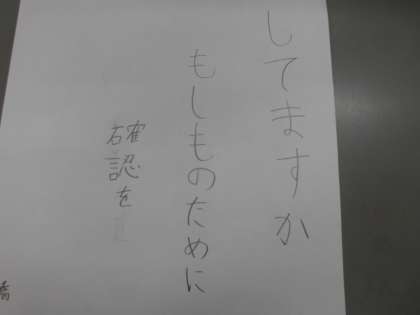 してますか
もしものために
確認を